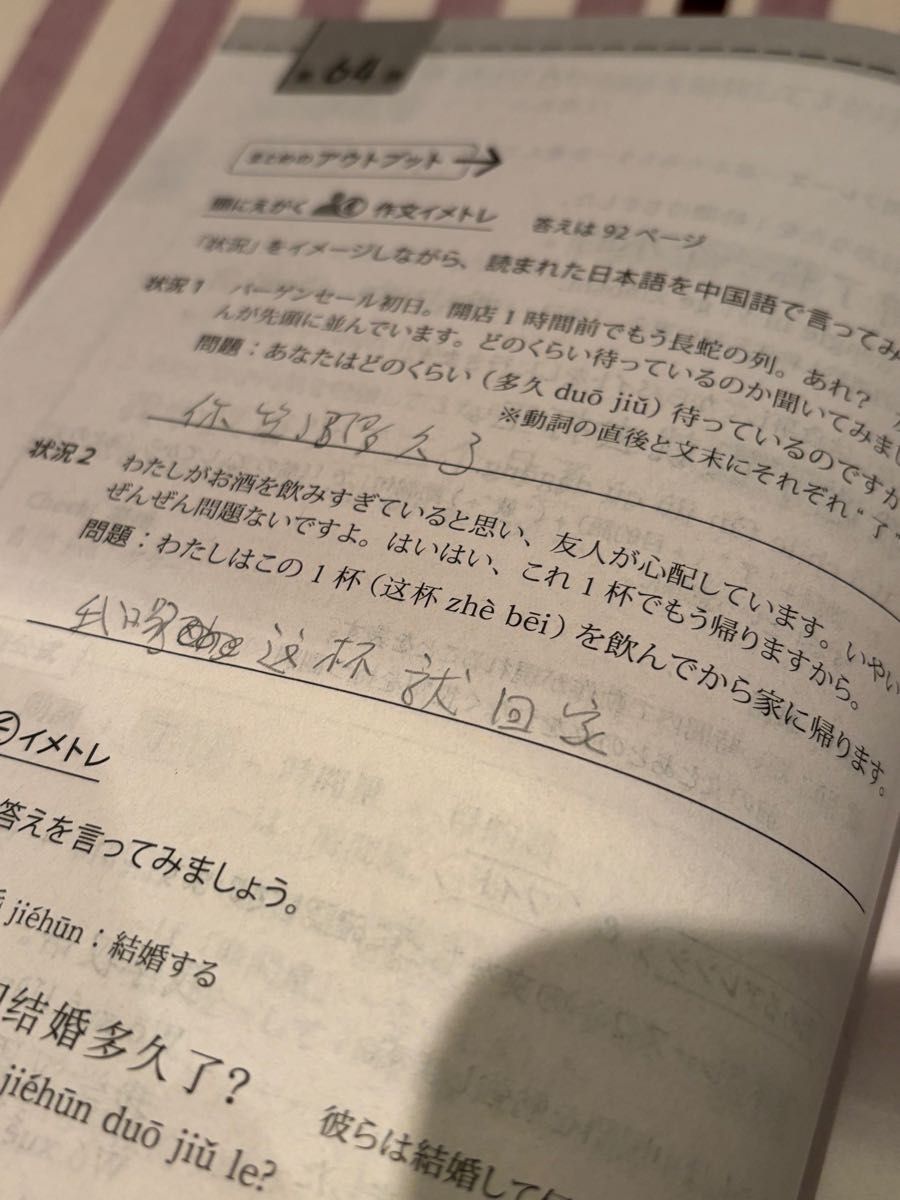 第 64 課
まとめのアウトプット
頭にえがく 作文イメトレ 答えは 92 ページ
「状況」をイメージしながら、読まれた日本語を中国語で言ってみ
状況 1 バーゲンセール初日。開店 1 時間前でもう長蛇の列。あれ?
んが先頭に並んでいます。どのくらい待っているのか聞いてみまし
問題：あなたはどのくらい（多久 duō jiǔ）待っているのですか
※動詞の直後と文末にそれぞれ“了
你 多久了
状況 2 わたしがお酒を飲みすぎていると思い、友人が心配しています。いやい
ぜんぜん問題ないですよ。はいはい、これ 1 杯でもう帰りますから。
問題：わたしはこの 1 杯（这杯 zhè bēi）を飲んでから家に帰ります。
我喝 这杯 就 回家
イメトレ
答えを言ってみましょう。
jiéhūn：結婚する
结婚多久了?
jiéhūn duō jiǔ le?
彼らは結婚して